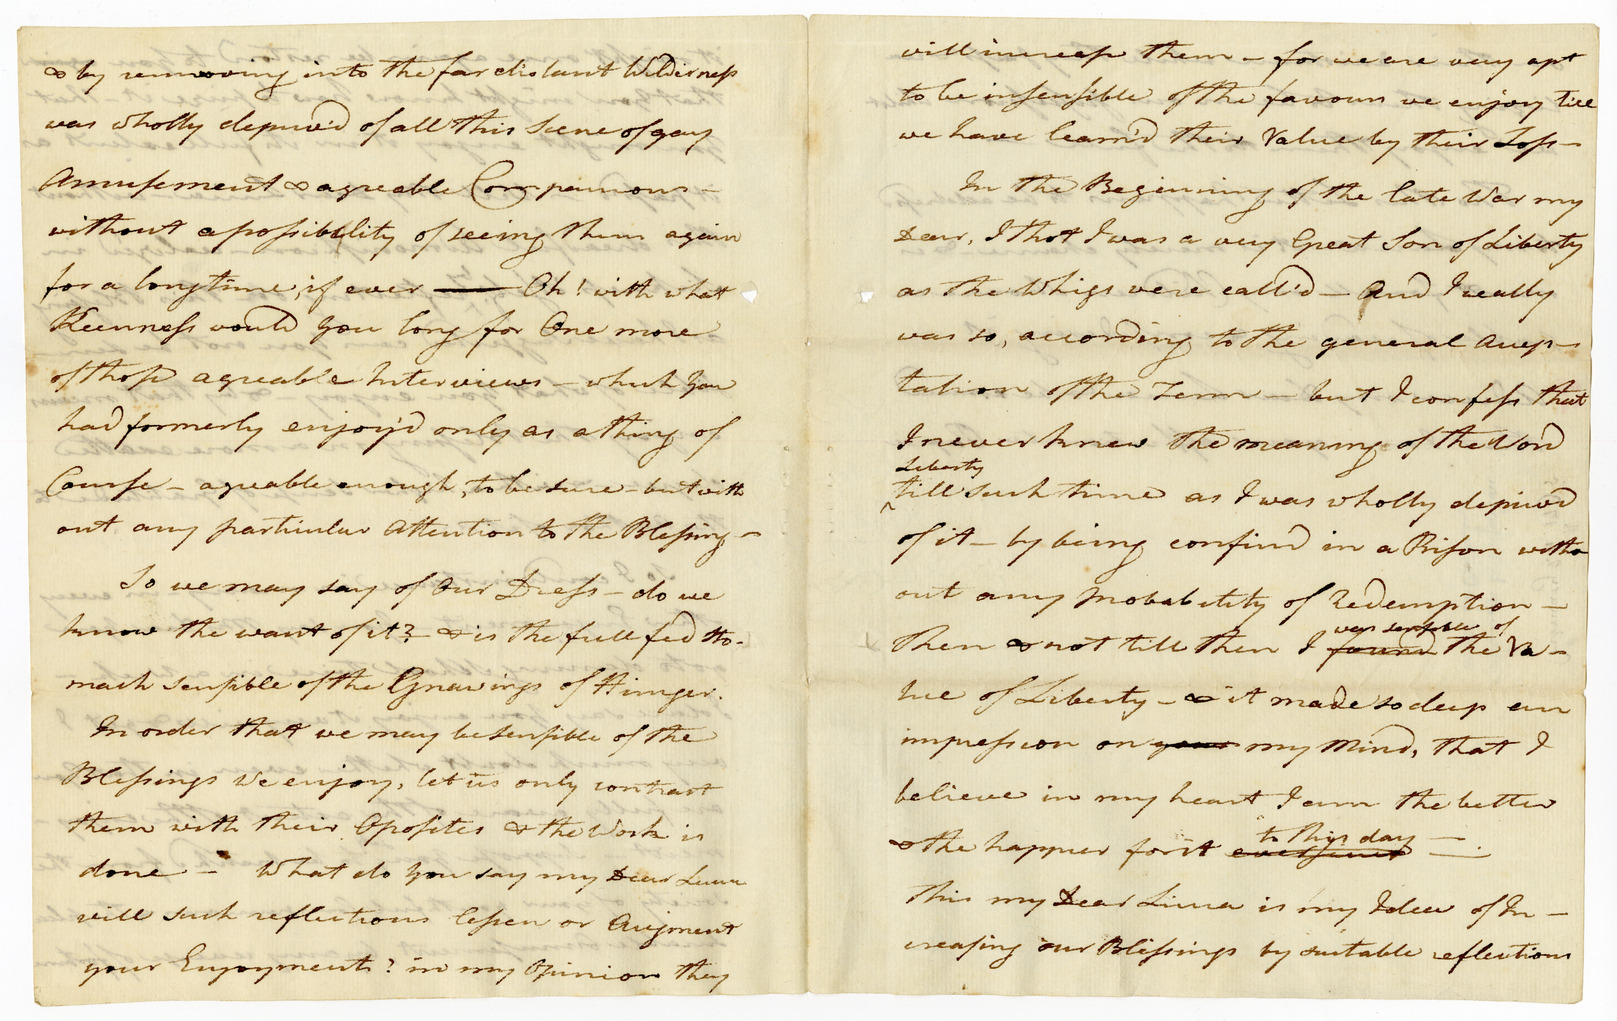 & by removing into the far distant Wilderness
was wholly depriv'd of all this Scene of gay
Amusement & agreable Companions —
without a possibility of seeing them again
for a long time, if ever —— Oh! with what
Keenness would you long for One more
of those agreable Interviews — which you
had formerly enjoy'd only as a thing of
Course — agreable enough, to be sure — but with
out any particular Attention to the Blessing —
So we may say of Our Dress — do we
know the want of it? — & is the full fed Sto-
mach sensible of the Gnawings of Hunger.
In order that we may be sensible of the
Blessings we enjoy, let us only contrast
them with their Oposites & the Work is
done — What do you say my Dear Lucia
will such reflections lessen or Augment
your Enjoyments? in my Opinion they
will increase them — for we are very apt
to be insensible of the favours we enjoy till
we have learn'd their Value by their Loss —
In the Beginning of the late War my
Dear, I thot I was a very Great Son of Liberty
as the Whigs were call'd — And I really
was so, according to the general Accep-
tation of the Term — but I confess that
I never knew the meaning of the Word
Liberty
^ till such time as I was wholly depriv'd
of it — by being confin'd in a Prison with-
out any Probability of Redemption —
was sensible of
Then & not till then I found the Va-
lue of Liberty — & it made so deep an
impression on your my Mind, that I
believe in my heart I am the better
to this day —
& the happier for it ever since —
This my Dear Lucia is my Idea of In-
creasing our Blessings by suitable reflections